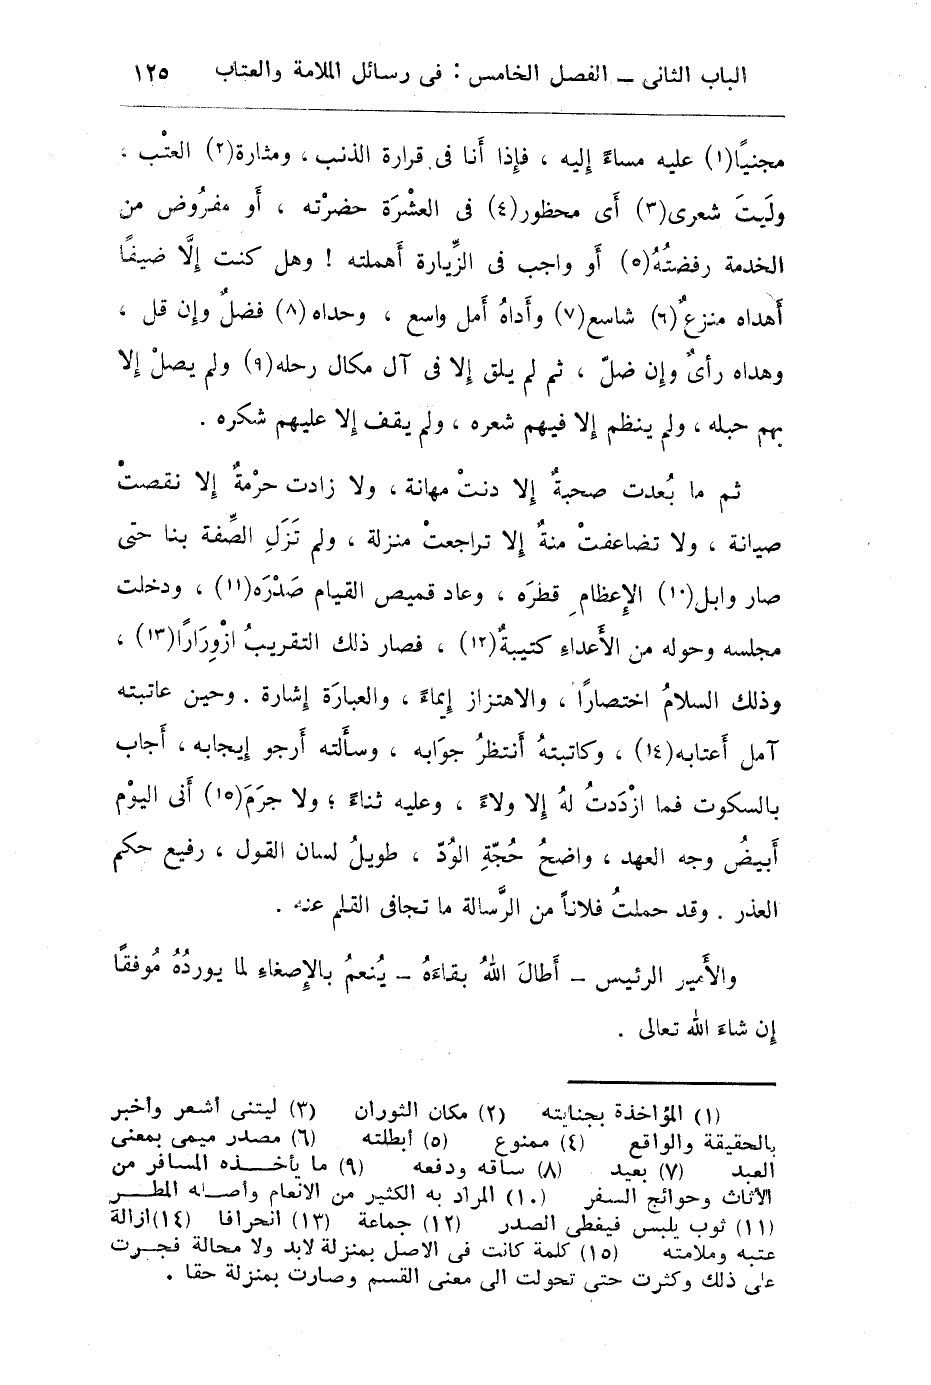 الباب الثانى ــ الفصل الخامس : فى رسائل الملامة والعتاب ١٢٥
مجنيًا(١) عليه مساءً إليه ، فإذا أنا فى قرارة الذنب ، ومثارة(٢) العتْب ،
ولَيتَ شعرى(٣) أى محظور(٤) فى العشْرَة حضرْته ، أو مفرُوض من
الخدمة رفضتُهُ(٥) أو واجب فى الزِّيارة أهملته ! وهل كنت إلَّا ضيفًا
أهداه منزعٌ(٦) شاسع(٧) وأداهُ أمل واسع ، وحداه(٨) فضلٌ وإن قل ،
وهداه رأىٌ وإن ضلّ ، ثم لم يلق إلا فى آل مكال رحله(٩) ولم يصلْ إلا
بهم حبله ، ولم ينظم إلا فيهم شعره ، ولم يقف إلا عليهم شكره .
ثم ما بُعدت صحبةٌ إلا دنتْ مهانة ، ولا زادت حرْمةٌ إلا نقصتْ
صيانة ، ولا تضاعفتْ منةٌ إلا تراجعتْ منزلة ، ولم تَزَلِ الصِّفة بنا حتى
صار وابل(١٠) الإعظامِ قطرَه ، وعاد قميص القيام صَدْرَه(١١) ، ودخلت
مجلسه وحوله من الأَعداءِ كتيبةٌ(١٢) ، فصار ذلك التقريبُ ازْوِرَارًا(١٣) ،
وذلك السلامُ اختصارًا ، والاهتزاز إيماءً ، والعبارَة إشارة . وحين عاتبته
آمل أعتابه(١٤) ، وكاتبتهُ أنتظرُ جوَابه ، وسأَلته أرجو إيجابه ، أجاب
بالسكوت فما ازْدَدتُ لهُ إلا ولاءً ، وعليه ثناءً ؛ ولا جرَمَ(١٥) أنى اليوْم
أَبيضُ وجه العهد ، واضحُ حُجّةِ الوُدّ ، طويلُ لسان القول ، رفيع حكم
العذر . وقد حملتُ فلاناً من الرَّسالة ما تجافى القلم عنه .
والأَمير الرئيس ــ أَطالَ اللهُ بقاءَهُ ــ يُنعمُ بالإِصغاءِ لما يوردُهُ مُوفقًا
إن شاءَ الله تعالى .
(١) المؤاخذة بجنايته (٢) مكان الثوران (٣) ليتنى أشعر وأخبر
بالحقيقة والواقع (٤) ممنوع (٥) أبطلته (٦) مصدر ميمى بمعنى
العبد (٧) بعيد (٨) ساقه ودفعه (٩) ما يأخـــذه المسافر من
الأثاث وحوائج السفر (١٠) المراد به الكثير من الانعام وأصـله المطـــر
(١١) ثوب يلبس فيغطى الصدر (١٢) جماعة (١٣) انحرافا (١٤)ازالة
عتبه وملامته (١٥) كلمة كانت فى الاصل بمنزلة لابد ولا محالة فجـرت
على ذلك وكثرت حتى تحولت الى معنى القسم وصارت بمنزلة حقا .